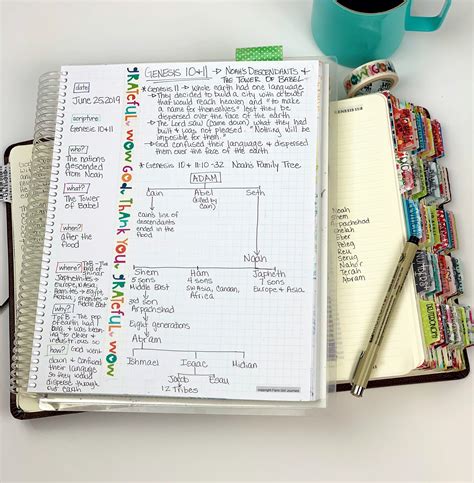 date
June 25, 2019
scripture
Genesis 10 & 11
who?
The nations
descended
from Noah
what?
The Tower
of Babel
when?
after the
flood
where?
Japhetites-
Europe, N. Asia
Hamites-
Arabia, Shemites-
Middle East
why?
TofB - The pop.
of earth had
been
becoming
clever &
industrious so
how? God went
down & confused
their language
so they would
disperse through
out earth
grateful. WOW God. Thank You. grateful. WOW
GENESIS 10 & 11 → NOAH'S DESCENDANTS &
THE TOWER OF BABEL
* Genesis 11 → whole earth had one language
→ They decided to build a city with a tower
that would reach heaven and "to make
a name for themselves" lest they be
dispersed over the face of the earth
→ The Lord saw (came down) what they had
built & was not pleased. "Nothing will be
impossible for them."
→ God confused their language & dispersed
them over the face of the earth
* Genesis 10 & 11:10-32 Noah's Family Tree
ADAM
Cain Abel Seth
(killed by
Cain)
Cain's line of
descendants
ended in the
flood
Noah
Shem Ham Japheth
5 sons 4 sons 7 sons
Middle East SW Asia, Canaan, Europe & Asia
Africa
Arpachshad
Eight generations
Abram
Ishmael Isaac Midian
Jacob Esau
12 Tribes
Noah
Shem
Arpachshad
Shelah
Eber
Peleg
Reu
Serug
Nahor
Terah
Abram